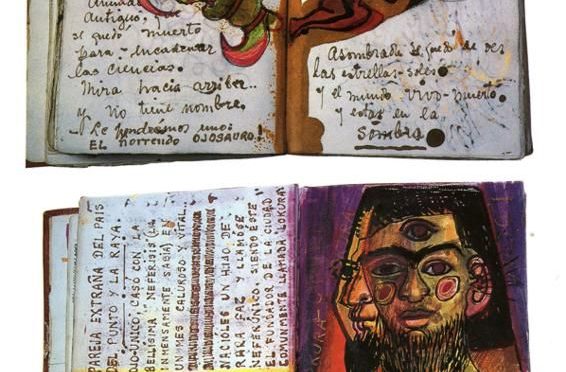 Antiguo,
se quedó muerto
para encadenar
las ciencias.
Mira hacia arriba..
y no tiene nombre.
- Le pondremos uno:
EL horrendo OJOSAURO!
Asombrada se quedó de ver
las estrellas-soles
y el mundo vivo-muerto
y estar en la
sombra
PAREJA EXTRAÑA DEL PAIS
DEL PUNTO Y LA RAYA.
OJO-UNICO, CASÓ CON LA
BELLISIMA NEFERISIS (LA
INMENSAMENTE SABIA) EN
UN MES CALUROSO Y VITAL.
NACIOLES UN HIJO DE
RARA FAZ Y LLAMOSE
NEFERÚNICO, SIENDO ESTE
EL FUNDADOR DE LA CIUDAD
COMUNMENTE LLAMADA "LOKURA"